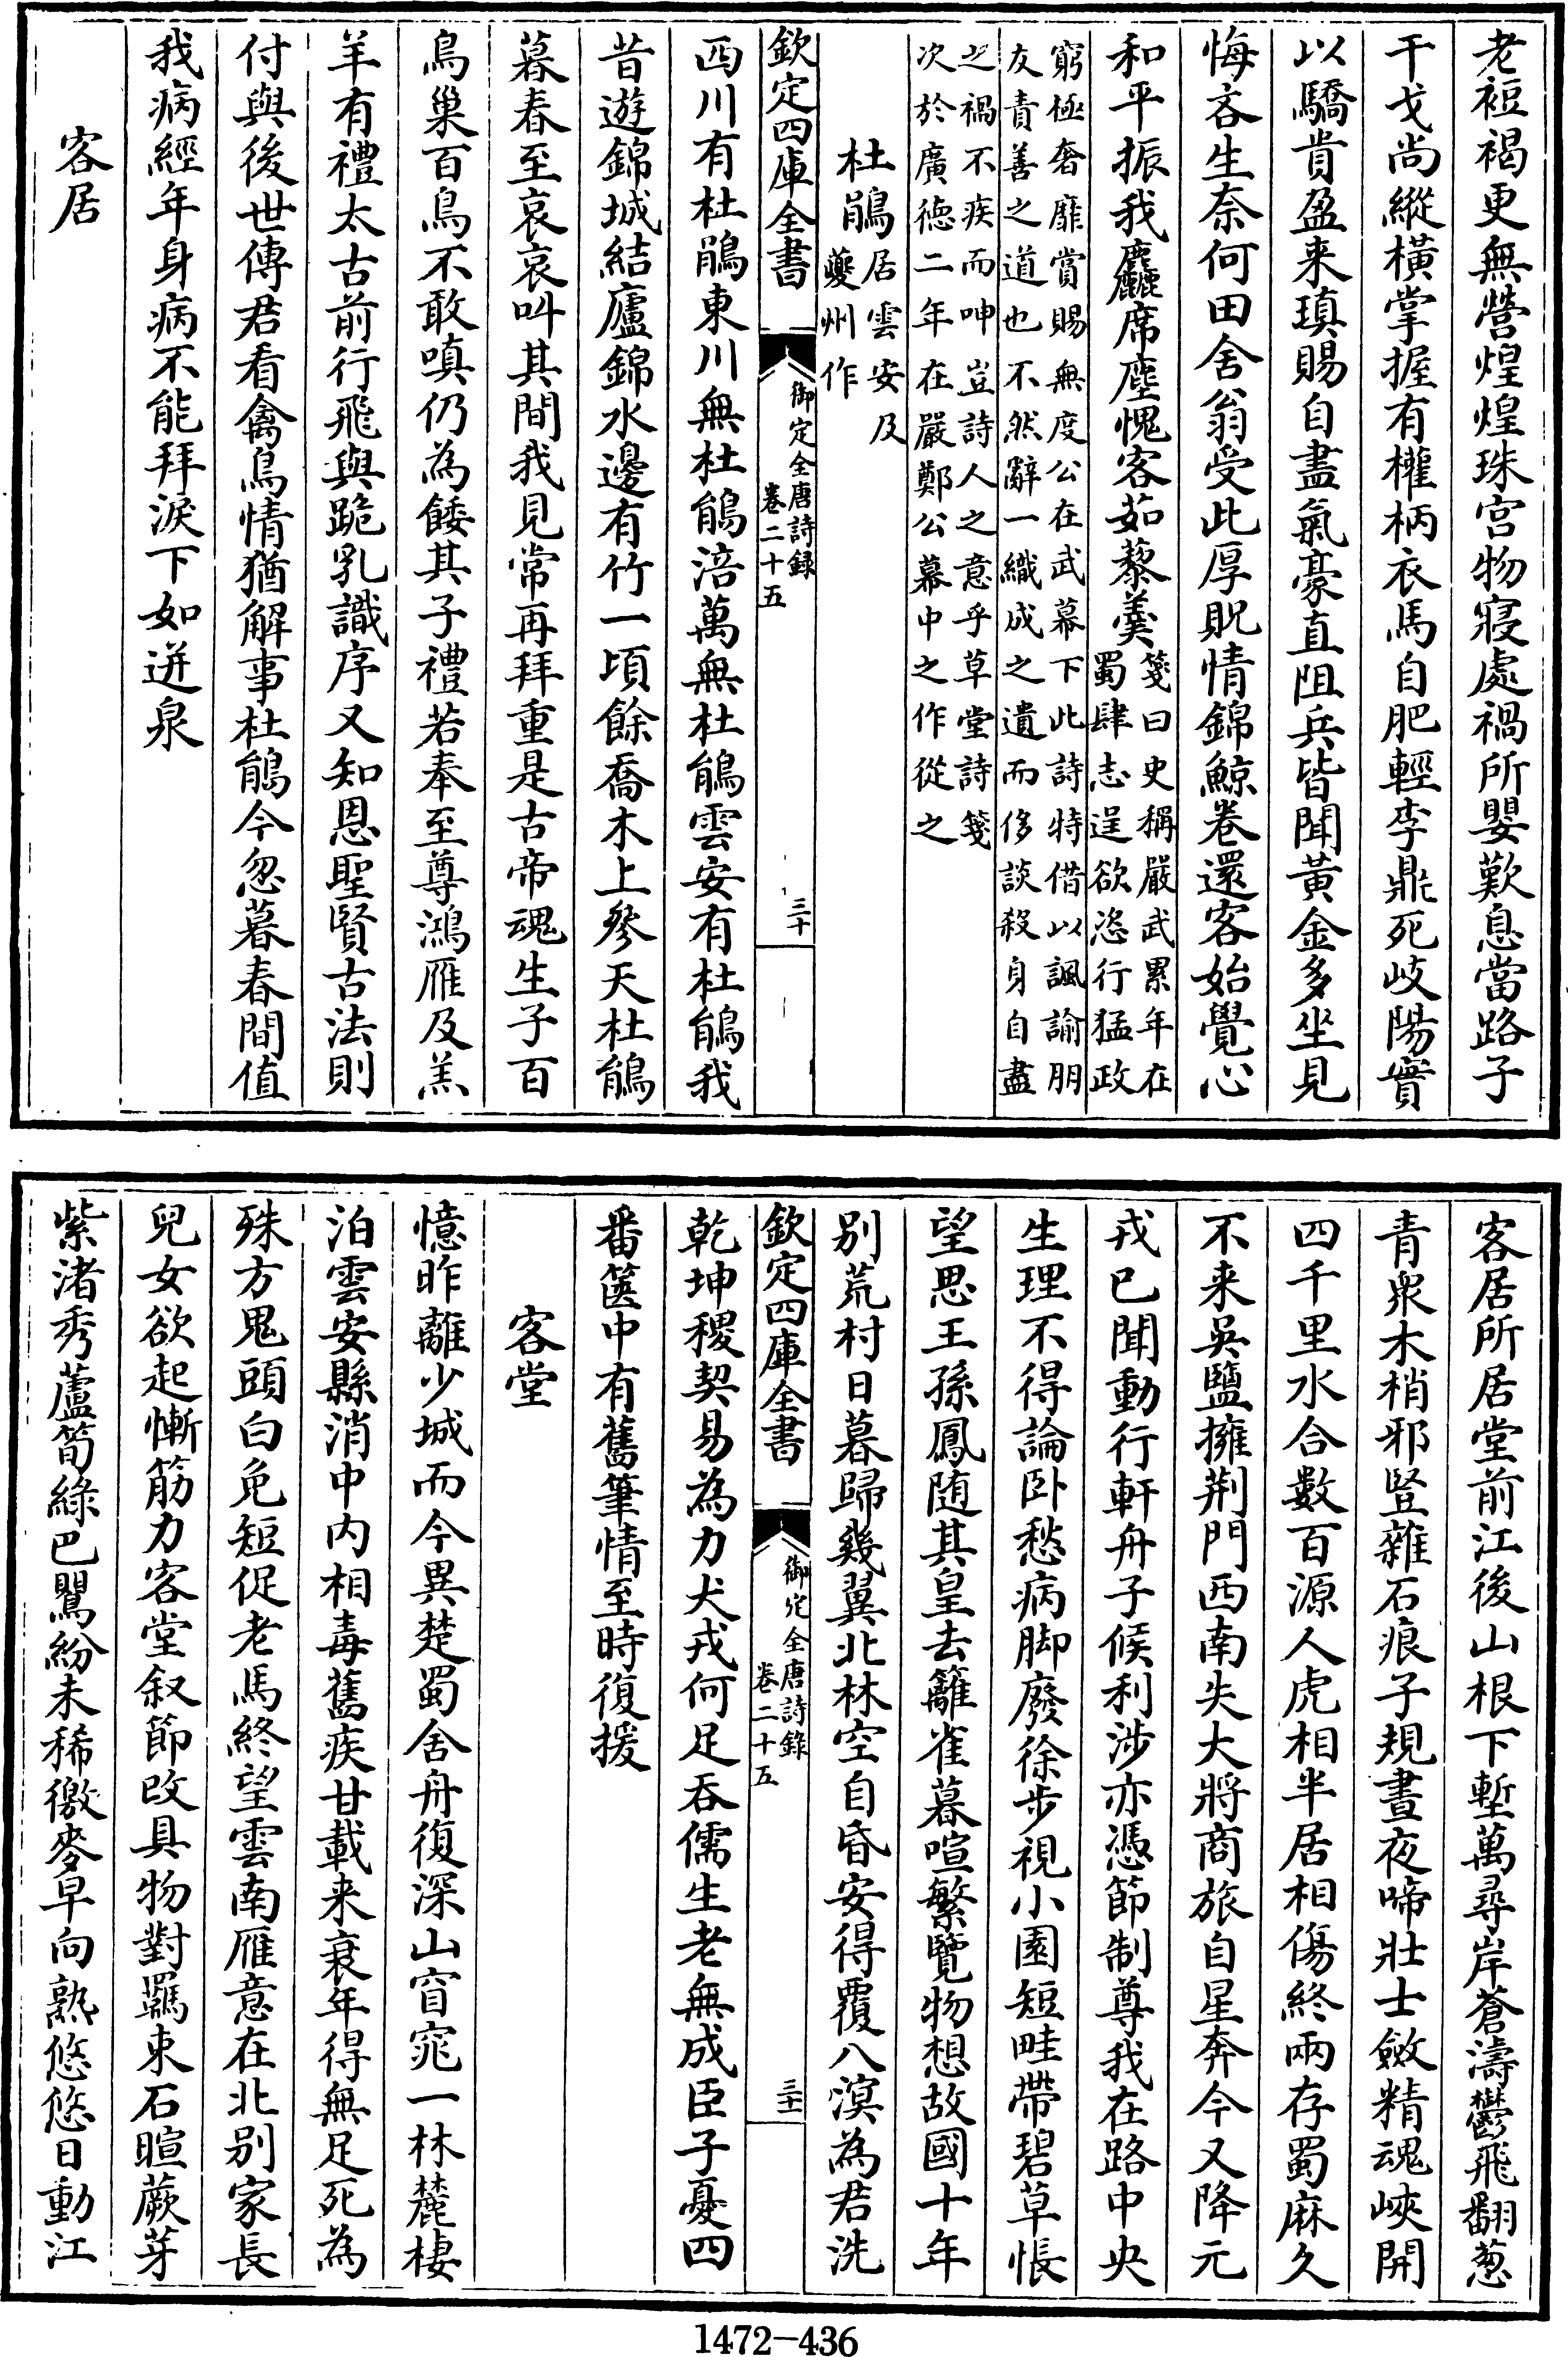 老裋褐更無營煌煌珠宫物寢處禍所嬰歎息當路子
干戈尚縱橫掌握有權柄衣馬自肥輕李鼎死岐陽實
以驕貴盈来瑱賜自盡氣豪直阻兵皆聞黃金多坐見
悔吝生奈何田舍翁受此厚貺情錦鯨卷還客始覺心
和平振我麤席塵愧客茹藜羮箋曰史稱嚴武累年在
蜀肆志逞欲恣行猛政
窮極奢靡賞賜無度公在武幕下此詩特借以諷諭朋
友責善之道也不然辭一織成之遺而侈談殺身自盡
之禍不疾而呻豈詩人之意乎草堂詩箋
次於廣徳二年在嚴鄭公幕中之作從之
杜鵑居雲安及
夔州作
欽定四庫全書
御定全唐詩録
卷二十五
三十
西川有杜鵑東川無杜鵑涪萬無杜鵑雲安有杜鵑我
昔遊錦城結廬錦水邊有竹一頃餘喬木上參天杜鵑
暮春至哀哀叫其間我見常再拜重是古帝魂生子百
鳥巢百鳥不敢嗔仍為餧其子禮若奉至尊鴻雁及羔
羊有禮太古前行飛與跪乳識序又知恩聖賢古法則
付與後世傳君看禽鳥情猶解事杜鵑今忽暮春間值
我病經年身病不能拜淚下如迸泉
客居
客居所居堂前江後山根下塹萬尋岸蒼濤鬱飛翻葱
青衆木梢邪豎雜石痕子規晝夜啼壯士斂精魂峽開
四千里水合數百源人虎相半居相傷終兩存蜀麻久
不来吳鹽擁荆門西南失大將商旅自星奔今又降元
戎已聞動行軒舟子候利涉亦憑節制尊我在路中央
生理不得論卧愁病脚廢徐步視小園短畦帶碧草悵
望思王孫鳳随其皇去籬雀暮喧繁覽物想故國十年
别荒村日暮歸幾翼北林空自昏安得覆八溟為君洗
欽定四庫全書
御定全唐詩錄
卷二十五
三十一
乾坤稷契易為力犬戎何足吞儒生老無成臣子憂四
番篋中有舊筆情至時復援
客堂
憶昨離少城而今異楚蜀舍舟復深山窅窕一林麓棲
泊雲安縣消中内相毒舊疾甘載来衰年得無足死為
殊方鬼頭白免短促老馬終望雲南雁意在北别家長
兒女欲起慚筋力客堂叙節改具物對羈束石暄蕨芽
紫渚秀蘆筍綠巴鸎紛未稀徼麥早向熟悠悠日動江
1472-436